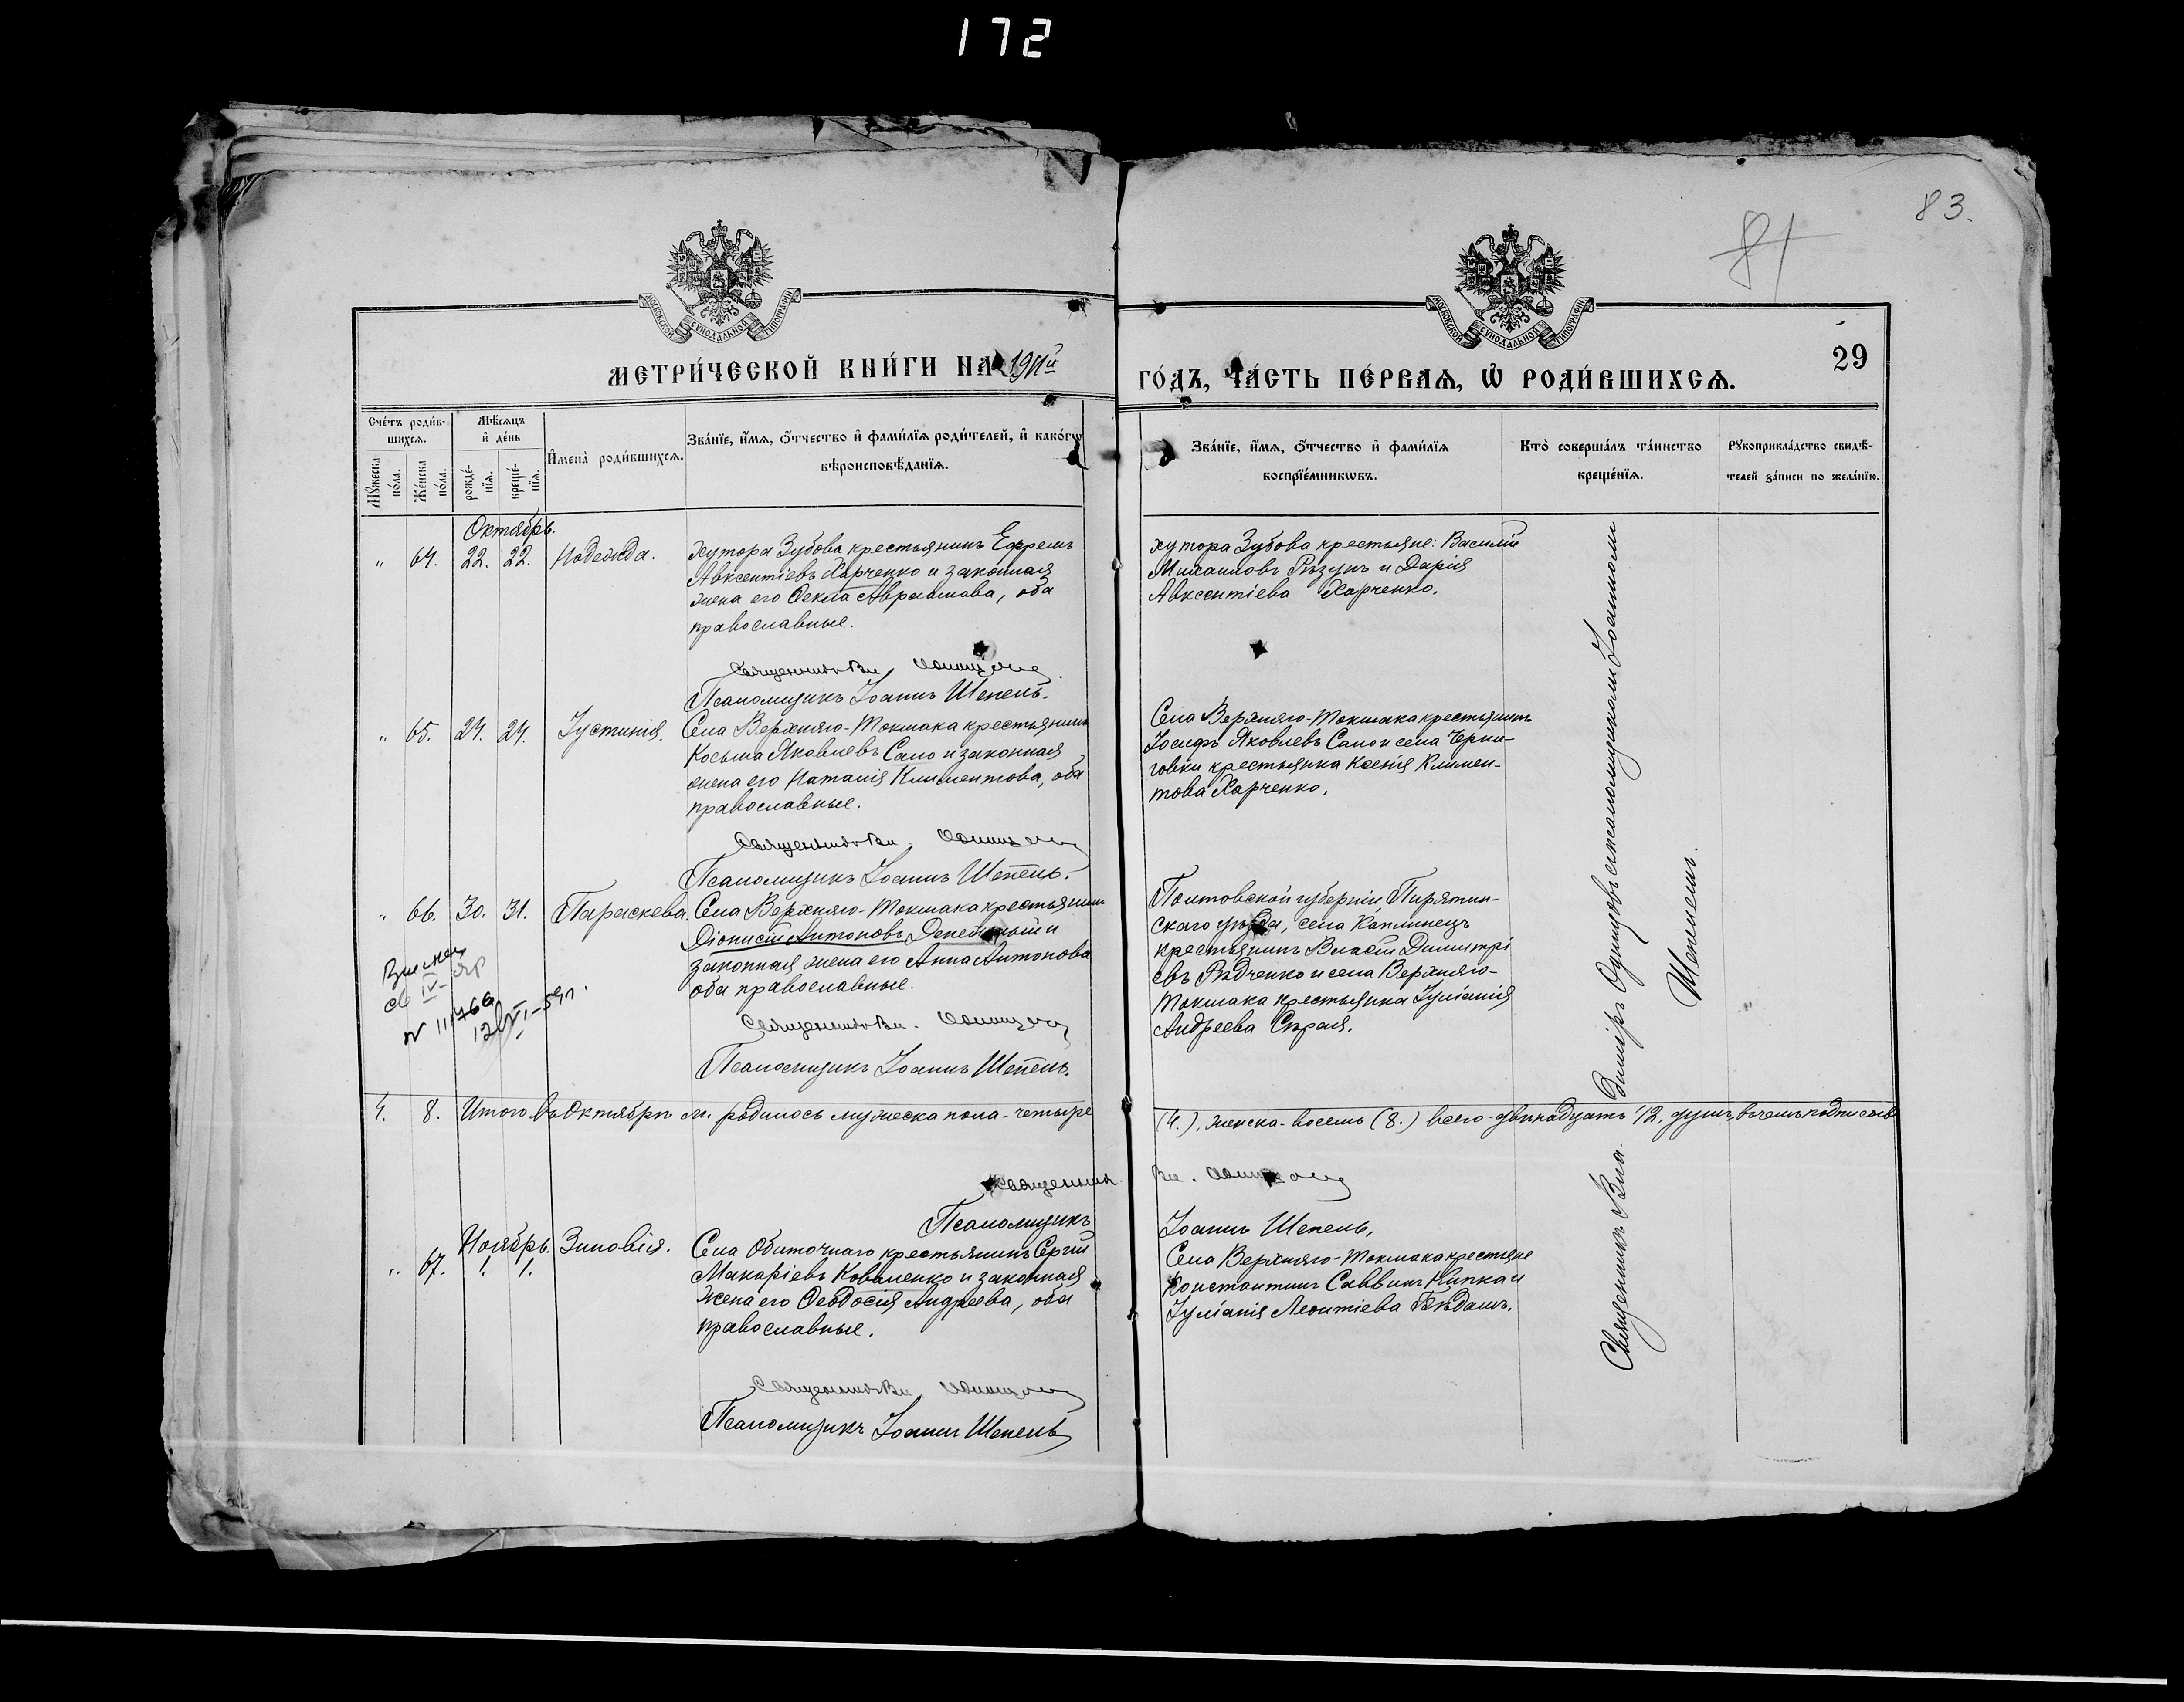 172
83.
81
МОСКОВСКОЙ СУНОДАЛЬНОЙ ТИПОГРАФІИ
МОСКОВСКОЙ СУНОДАЛЬНОЙ ТИПОГРАФІИ
МЕТРИ́ЧЕСКОЙ КНИ́ГИ НА 1911й
ГО́ДЪ, ЧА́СТЬ ПЕ́РВАѦ, Ѡ҆ РОДИ́ВШИХСѦ.
29
Сче́тъ роди́в-
шихсѧ.
Мꙋ́жеска по́ла.
Же́нска по́ла.
Мѣ́сѧцъ
и҆ де́нь
рожде́-
нїѧ.
креще́-
нїѧ.
И҆мена̀ роди́вшихсѧ.
Зва́нїе, и҆́мѧ, ѻ҆́тчество и҆ фами́лїѧ роди́телей, и҆ како́гѡ
вѣроисповѣ́данїѧ.
Зва́нїе, и҆́мѧ, ѻ҆́тчество и҆ фами́лїѧ
воспрїе́мникѡвъ.
Кто̀ соверша́лъ та́инство
креще́нїѧ.
Рꙋкоприкла́дство свидѣ́-
телей за́писи по жела́нїю.
Октябрь.
" 64. 22. 22. Надежда.
хутора Зубова крестьянинъ Ефремъ
Авксентіевъ Харченко и законная
жена его Ѳекла Авраамова, оба
православные.
Священникъ Вл.
Псаломщикъ Іоаннъ Шепель.
хутора Зубова крестьяне: Василій
Михаиловъ Рѣзунъ и Дарія
Авксентіева Харченко.
" 65. 24. 24. Іустинія.
Села Верхняго-Токмака крестьянинъ
Косьма Яковлевъ Сало и законная
жена его Наталія Климентова, оба
православные.
Священникъ Вл.
Псаломщикъ Іоаннъ Шепель.
Села Верхняго-Токмака крестьянинъ
Іосифъ Яковлевъ Сало и села Черни-
говки крестьянка Ксенія Климен-
това Харченко.
" 66. 30. 31. Параскева.
Села Верхняго-Токмака крестьянинъ
Діонисій Антоновъ и
законная жена его Анна Антонова
оба православные.
Священникъ Вл.
Псаломщикъ Іоаннъ Шепель.
Полтовской губерніи, Пирятин-
скаго уѣзда, села Каплинецъ
крестьянинъ Власій Димитрі
евъ Рѣдченко и села Верхняго-
Токмака крестьянка Іуліанія
Андреева Сѣрая.
4. 8. Итого въ Октябрѣ м. родилось мужеска пола - четыре
(4.), женска - восемь (8.) всего - двѣнадцать 12, душъ, въ чемъ подписомъ
Священникъ Вл.
Псаломщикъ
Іоаннъ Шепель,
Ноябрь.
" 67. 1. 1. Зиновія.
Села Обиточнаго крестьянинъ Сергій
Макаріевъ Коваленко и законная
жена его Ѳеодосія Андреева, оба
православные.
Священникъ Вл.
Псаломщикъ Іоаннъ Шепель
Села Верхняго-Токмака крестьяне
Константинъ Саввинъ и
Іуліанія Леонтіева
Священникъ Владиміръ Одинцовъ съ псаломщикомъ Іоанномъ
Шепелемъ.